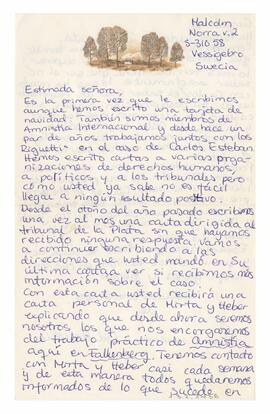 Malcolm
Norra v. 2
S-310 58
Vessigebro
Suecia
Estimada señora,
Es la primera vez que le escribimos
aunque hemos escrito una tarjeta de
navidad. También somos miembros de
Amnistía Internacional y desde hace un
par de años trabajamos juntos con los
Riguetti en el caso de Carlos Esteban.
Hemos escrito cartas a varias orga-
nizaciones de derechos humanos,
a políticos y a los tribunales pero
cómo usted ya sabe no es fácil
llegar a ningún resultado positivo.
Desde el otoño del año pasado escribimos
una vez al mes una carta dirigida al
tribunal de la Plata sin que hayamos
recibido ninguna respuesta. Vamos
a continuar escribiendo a las
direcciones que usted mandó en su
última carta a ver si recibimos más
información sobre el caso.
Con esta carta usted recibirá una
carta personal de Mirta y Heber
explicando que desde ahora seremos
nosotros los que nos encargaremos
del trabajo práctico de Amnistía
aquí en Falkenberg. Tenemos contacto
con Mirta y Heber casi cada semana
y de esta manera todos quedaremos
informados de lo que sucede en